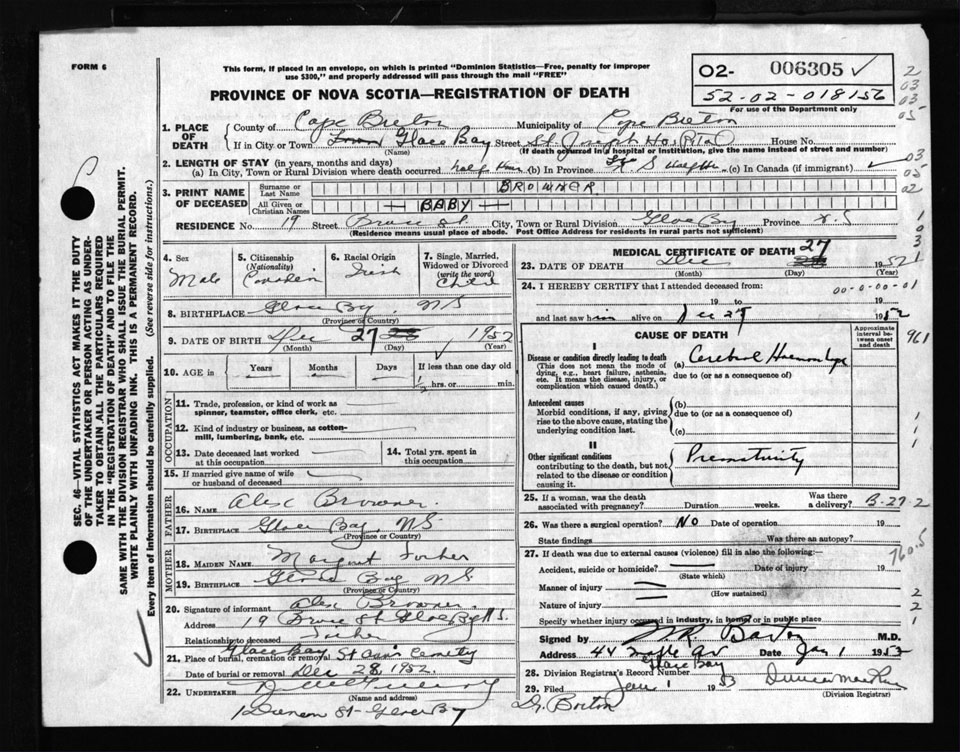 FORM 6
This form, if placed in an envelope, on which is printed "Dominion Statistics—Free, penalty for improper
use $300," and properly addressed will pass through the mail "FREE"
PROVINCE OF NOVA SCOTIA—REGISTRATION OF DEATH
02- 006305
52-02-018156
For use of the Department only
1. PLACE OF DEATH
County of Cape Breton Municipality of Cape Breton
If in City or Town Town Glace Bay Street St. Joseph Hospital House No.
(Name) (If death occurred in a hospital or institution, give the name instead of street and number)
2. LENGTH OF STAY (in years, months and days)
(a) In City, Town or Rural Division where death occurred half Hour (b) In Province (c) In Canada (if immigrant)
3. PRINT NAME OF DECEASED
Surname or Last Name BROWNER
All Given or Christian Names BABY
RESIDENCE No. 19 Street City, Town or Rural Division Glace Bay Province N.S
(Residence means usual place of abode. Post Office Address for residents in rural parts not sufficient)
4. Sex Male
5. Citizenship (Nationality) Canadian
6. Racial Origin Irish
7. Single, Married, Widowed or Divorced (write the word) Child
8. BIRTHPLACE Glace Bay NS
(Province or Country)
9. DATE OF BIRTH Dec 27 1952
(Month) (Day) (Year)
10. AGE in Years Months Days If less than one day old
½ hrs. or min.
OCCUPATION
11. Trade, profession, or kind of work as
spinner, teamster, office clerk, etc.
12. Kind of industry or business, as cotton-
mill, lumbering, bank, etc.
13. Date deceased last worked
at this occupation
14. Total yrs. spent in
this occupation
15. If married give name of wife
or husband of deceased
FATHER
16. NAME Alex Browner
17. BIRTHPLACE Glace Bay, NS
(Province or Country)
MOTHER
18. MAIDEN NAME Margaret
19. BIRTHPLACE Glace Bay NS.
(Province or Country)
20. Signature of informant Alex Browner
Address 19 St. Glace Bay NS.
Relationship to deceased Father
21. Place of burial, cremation or removal Glace Bay St Ann's Cemetery
Date of burial or removal Dec 28, 1952
22. UNDERTAKER
(Name and address)
St- Glace Bay
MEDICAL CERTIFICATE OF DEATH
23. DATE OF DEATH Dec 27 1952
(Month) (Day) (Year)
24. I HEREBY CERTIFY that I attended deceased from:
19 to 19
and last saw him alive on Dec 27 1952
CAUSE OF DEATH
Approximate interval between onset and death
I
Disease or condition directly leading to death
(This does not mean the mode of
dying, e.g., heart failure, asthenia,
etc. It means the disease, injury, or
complication which caused death.)
(a) Cerebral Haemorrhage
due to (or as a consequence of)
Antecedent causes
Morbid conditions, if any, giving
rise to the above cause, stating the
underlying condition last.
(b)
due to (or as a consequence of)
(c)
II
Other significant conditions
contributing to the death, but not
related to the disease or condition
causing it.
Prematurity
25. If a woman, was the death
associated with pregnancy? Duration weeks. Was there a delivery?
26. Was there a surgical operation? No Date of operation 19
State findings Was there an autopsy?
27. If death was due to external causes (violence) fill in also the following:—
Accident, suicide or homicide? Date of injury 19
(State which)
Manner of injury
(How sustained)
Nature of injury
Specify whether injury occurred in industry, in home or in public place
Signed by M.D.
Address 44 Maple Av Date Jan 1 1953
Glace Bay
28. Division Registrar's Record Number
29. Filed Jan 1 1953
(Division Registrar)
SEC. 46—VITAL STATISTICS ACT MAKES IT THE DUTY
OF THE UNDERTAKER OR PERSON ACTING AS UNDER-
TAKER TO OBTAIN ALL THE PARTICULARS REQUIRED
IN THE "REGISTRATION OF DEATH" AND TO FILE THE
SAME WITH THE DIVISION REGISTRAR WHO SHALL ISSUE THE BURIAL PERMIT.
WRITE PLAINLY WITH UNFADING INK. THIS IS A PERMANENT RECORD.
Every item of information should be carefully supplied. (See reverse side for instructions.)